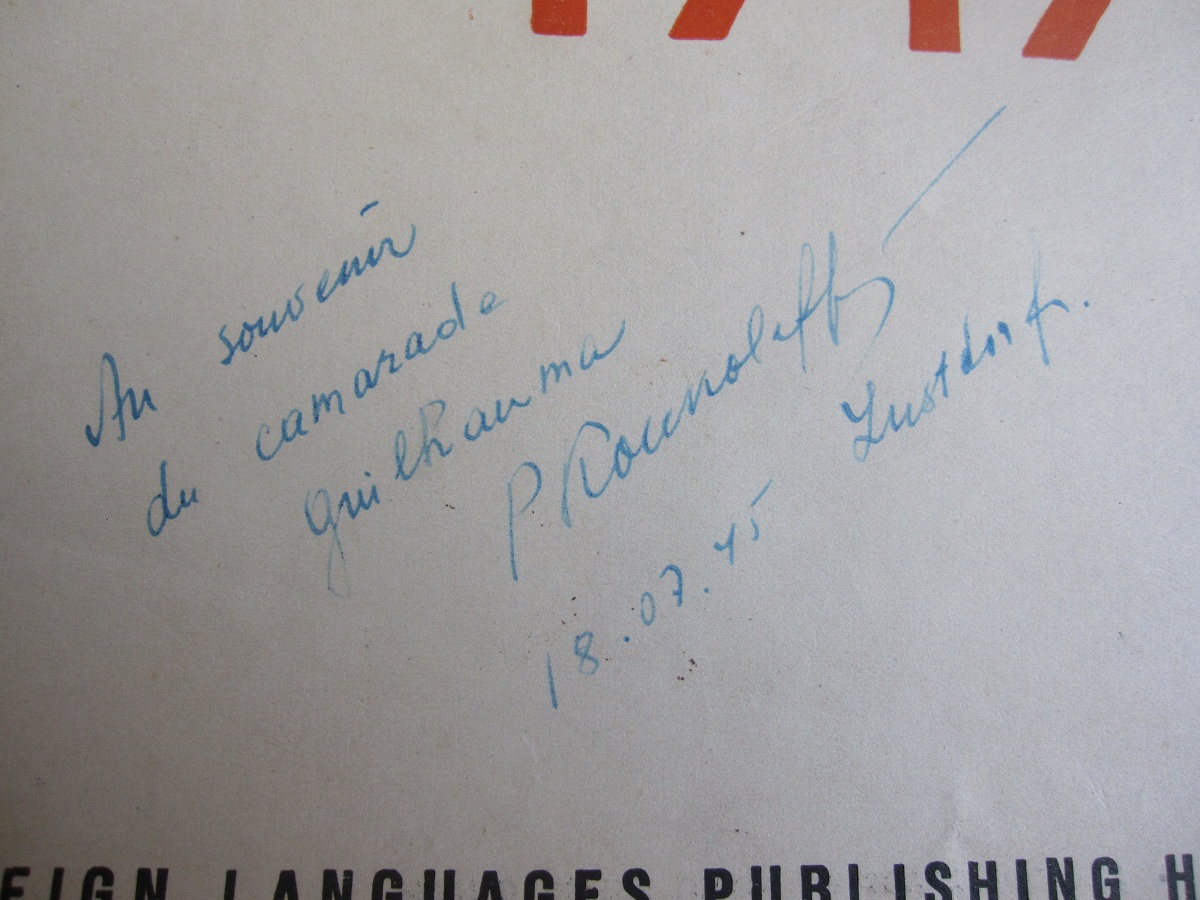 Au souvenir
du camarade
guilhauma
P
Lustdorf.
18.07.45
EIGN LANGUAGES PUBLISHING H